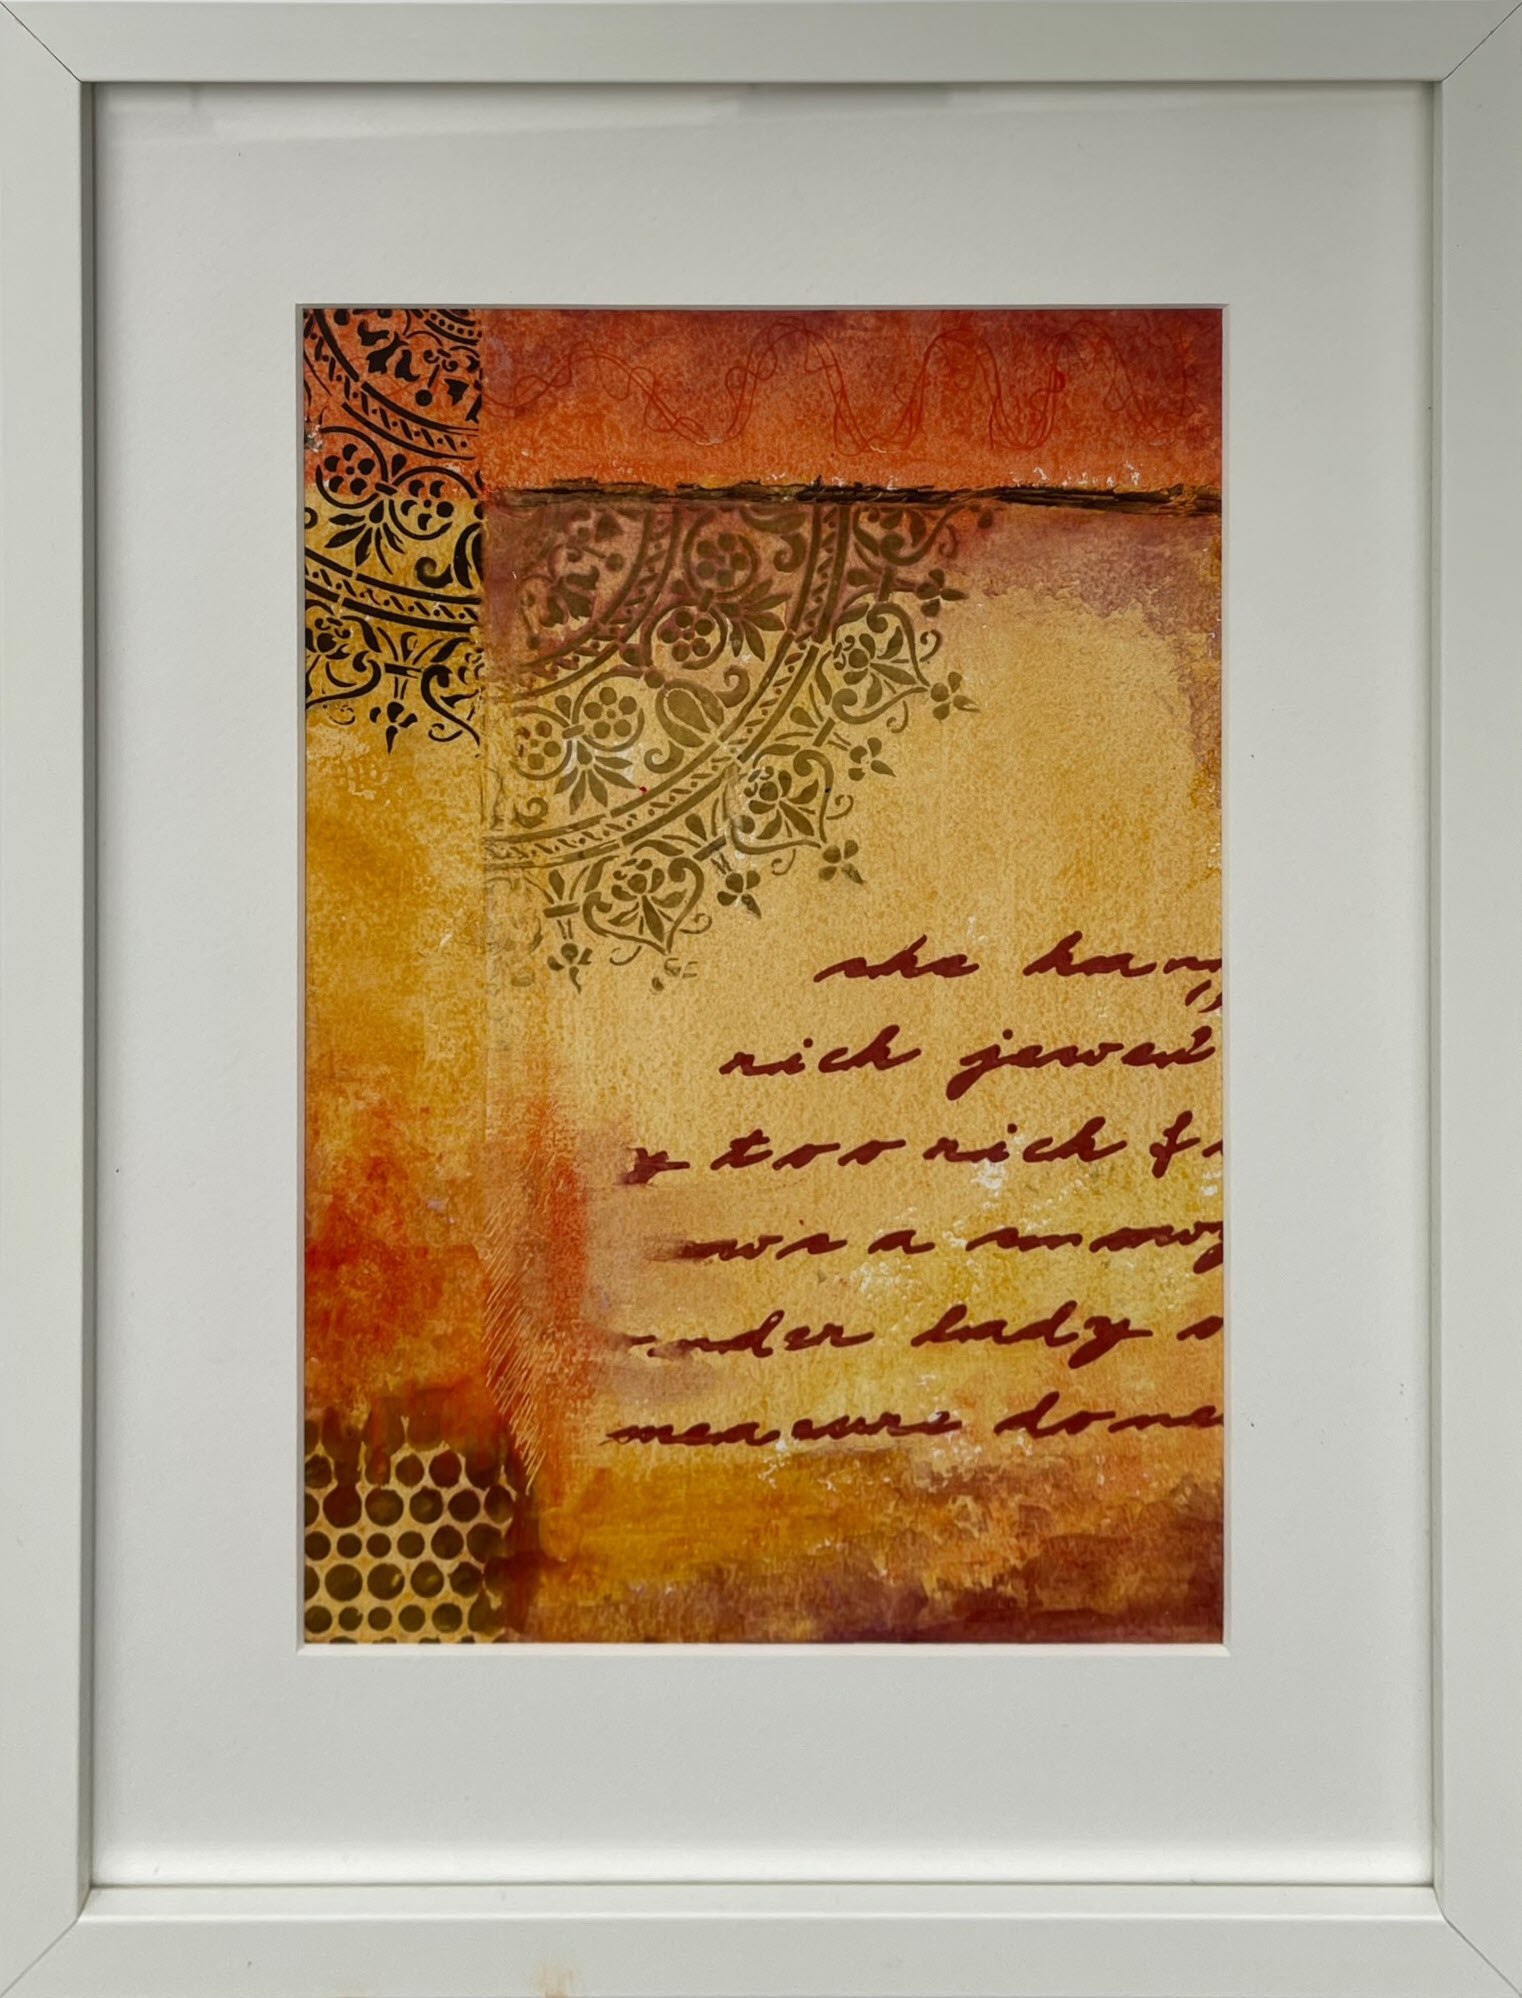 she hang
rich jewel
y too rich fo
ows a snowy
onder lady o
measure done